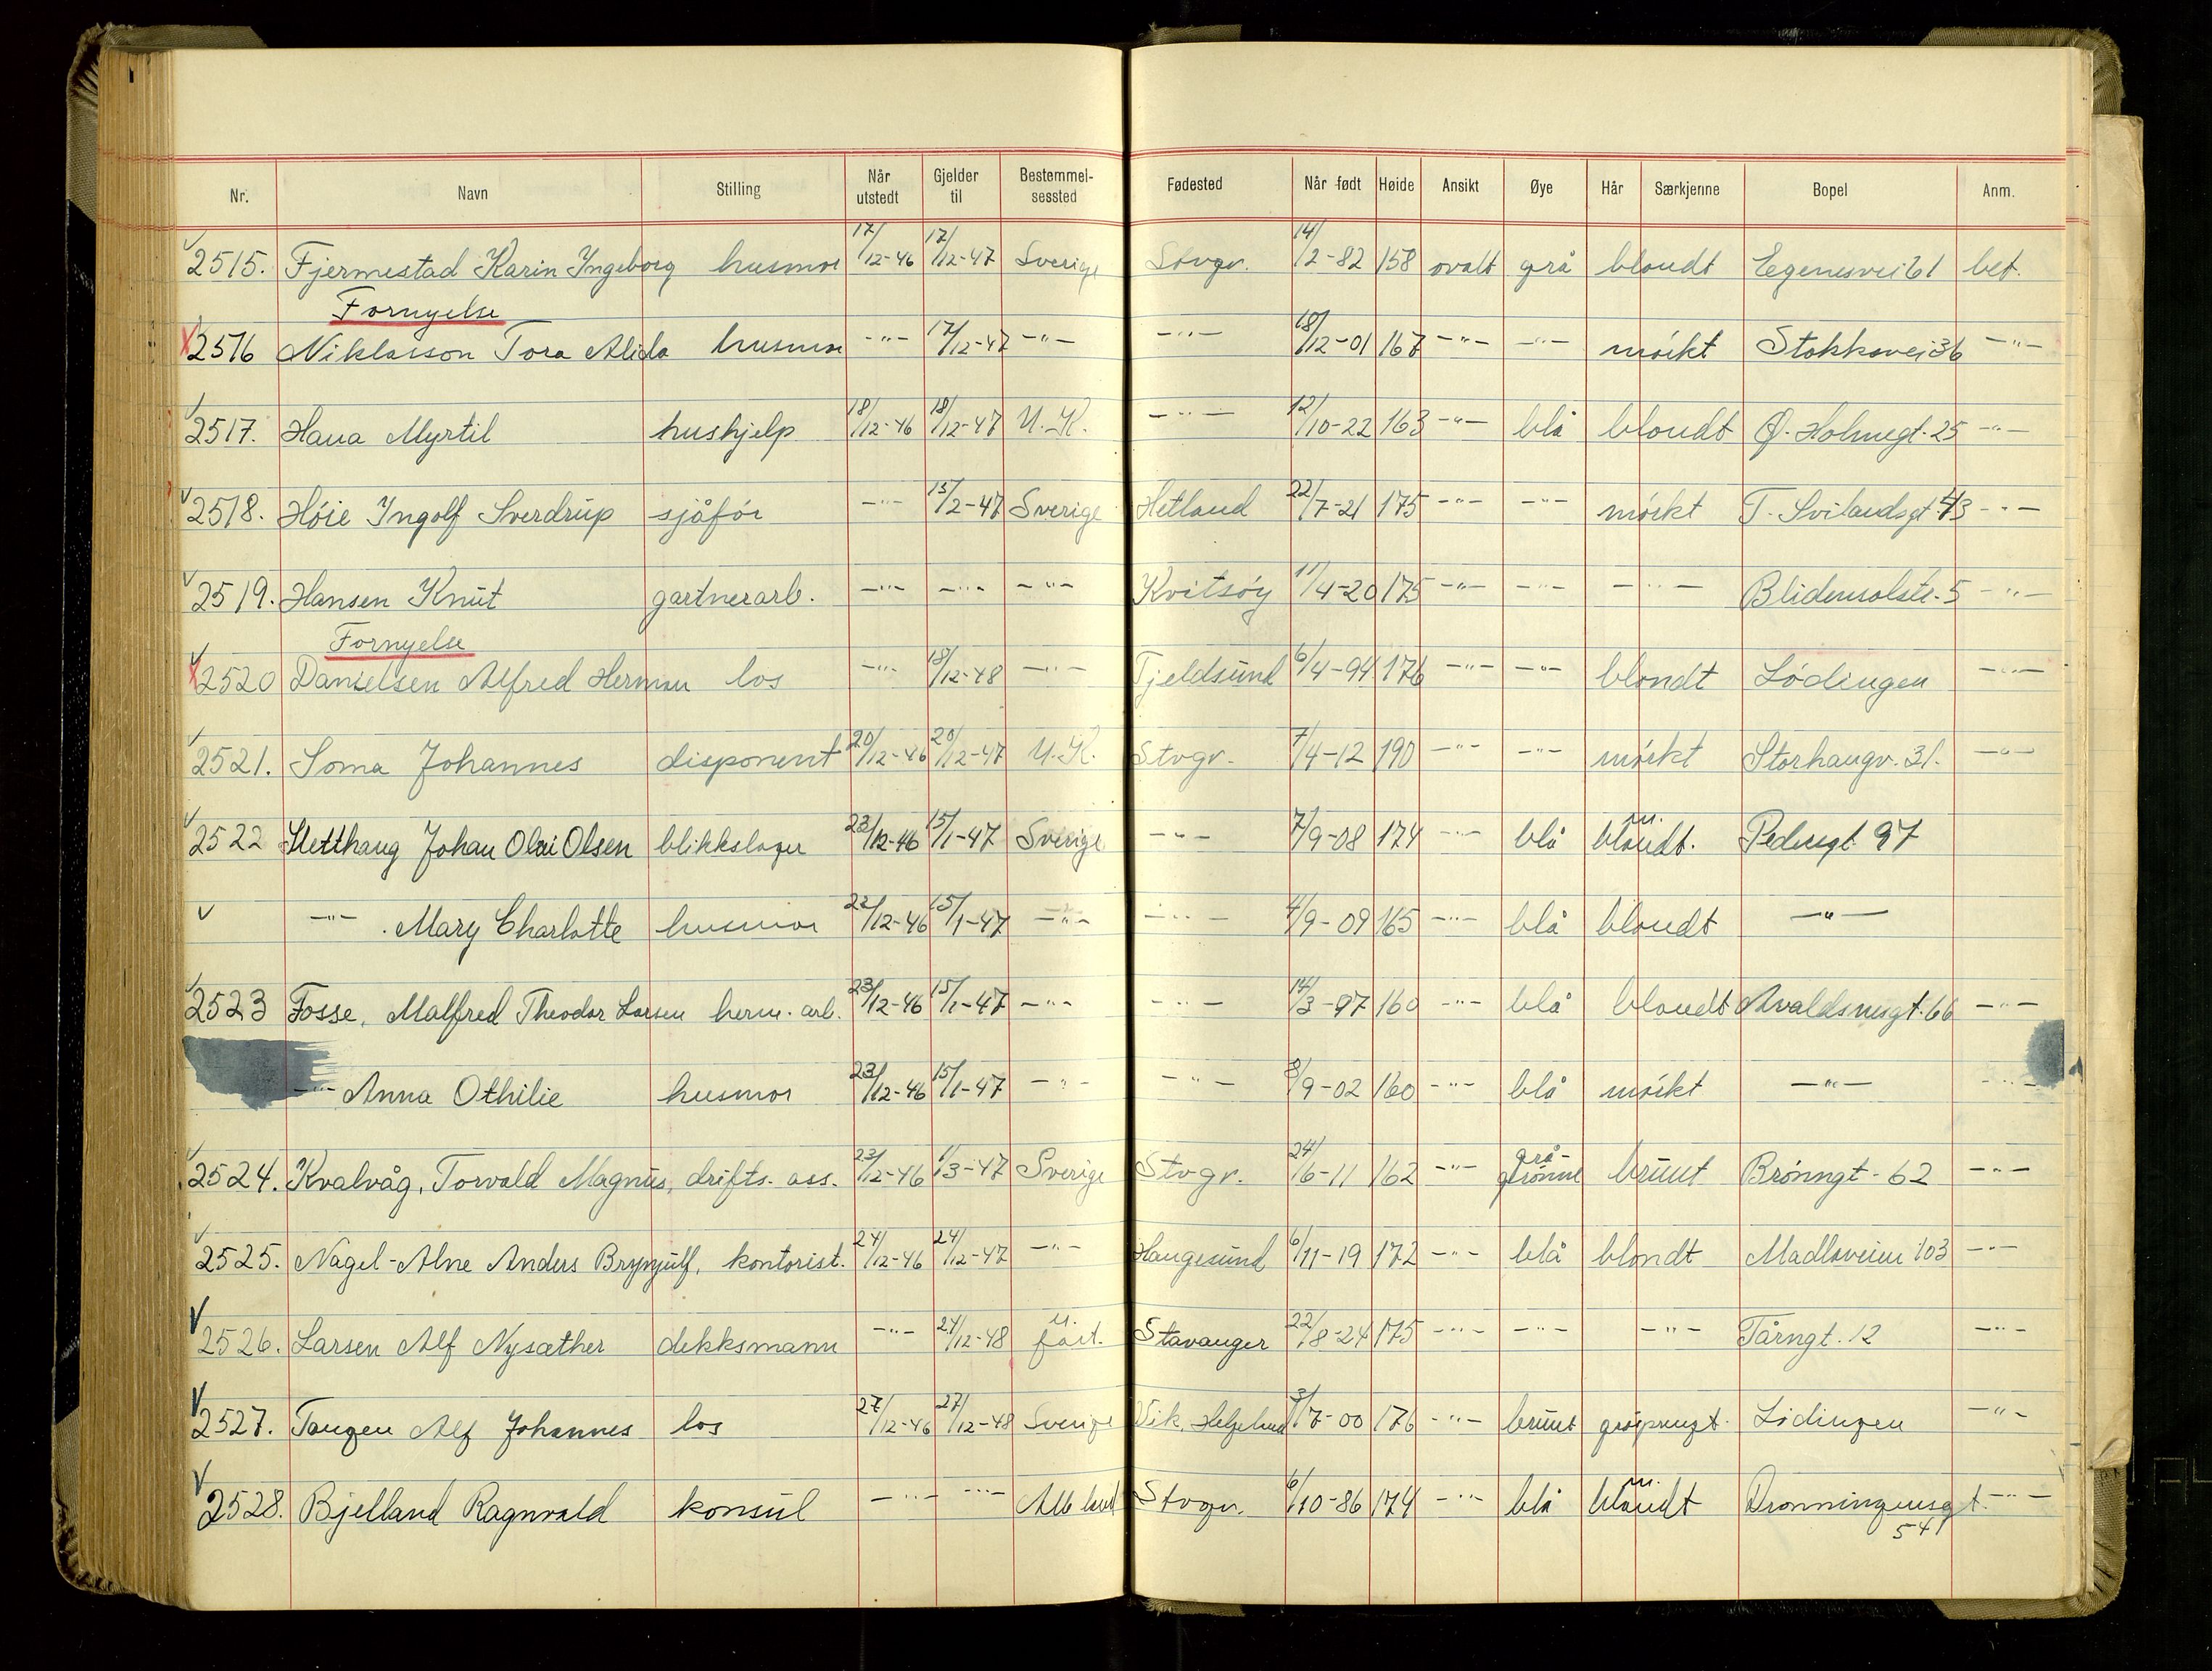 Nr. Navn Stilling Når utstedt Gjelder til Bestemmel-sessted Fødested Når født Høide Ansikt Øye Hår Særkjenne Bopel Anm.
2515. Fjermestad Karin Ingeborg husmor 17/12-46 17/12-47 Sverige Stvgr. 14/2-82 158 ovalt grå blondt Egenesvei 61 bet.
Fornyelse
2516 Niklasson Tora Alida husmor -"- 17/12-47 -"- -"- 18/12-01 167 -"- -"- mörkt Stokkavei 36 -"-
2517. Hana Myrtil hushjelp 18/12-46 18/12-47 U.K. -"- 12/10-22 163 -"- blå blondt Ø. Holmegt. 25 -"-
2518. Höie Ingolf Sverdrup sjåför -"- 15/2-47 Sverige Hetland 22/7-21 175 -"- -"- mörkt T. Svilandsgt. 43 -"-
2519. Hansen Knut gartnerarb. -"- -"- -"- Kvitsöy 11/4-20 175 -"- -"- -"- Blidensolstr. 5 -"-
Fornyelse
2520 Danielsen Alfred Herman los -"- 18/12-48 -"- Tjeldsund 6/4-94 176 -"- -"- blondt Lödingen -"-
2521. Soma Johannes disponent 20/12-46 20/12-47 U.K. Stvgr. 7/4-12 190 -"- -"- mörkt Storhaugv. 31. -"-
2522 Sletthaug Johan Olai Olsen blikkslager 23/12-46 15/1-47 Sverige -"- 7/9-08 174 -"- blå m. blondt. Pedersgt. 97
-"- . Mary Charlotte husmor 22/12-46 15/1-47 -"- -"- 4/9-09 165 -"- blå blondt -"-
2523 Fosse, Malfred Theodor Larsen herm. arb. 23/12-46 15/1-47 -"- -"- 14/3-97 160 -"- blå blondt Avaldsnesgt. 66 -"-
-"- Anna Othilie husmor 23/12-46 15/1-47 -"- -"- 8/9-02 160 -"- blå mörkt -"- -"-
2524. Kvalvåg, Torvald Magnus, drifts. ass. 23/12-46 1/3-47 Sverige Stvgr. 24/6-11 162 -"- grå-grönne brunt Brönngt. 62 -"-
2525. Nagel-Alne Anders Brynjulf, kontorist. 24/12-46 24/12-47 -"- Haugesund 6/11-19 172 -"- blå blondt Madlaveien 103 -"-
2526. Larsen Alf Nysæther dekksmann -"- 24/12-48 u. fart. Stavanger 22/8-24 175 -"- -"- -"- Tårngt. 12 -"-
2527. Tangen Alf Johannes los 27/12-46 27/12-48 Sverige Vik, 3/7-00 176 -"- brunt gråsprengt. Lödingen -"-
2528. Bjelland Ragnvald konsul -"- -"- Alle land Stvgr. 6/10-86 174 -"- blå m. blondt Dronningensgt. -"-
54